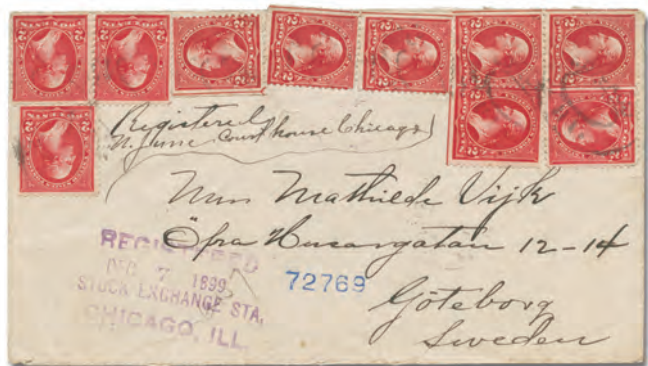 Registered
Court house Chicago
Mrs Mathilde Vijk
Öfra Husargatan 12-14
Göteborg
Sweden
REGISTERED
DEC 7 1899
STOCK EXCHANGE STA.
CHICAGO, ILL.
72769